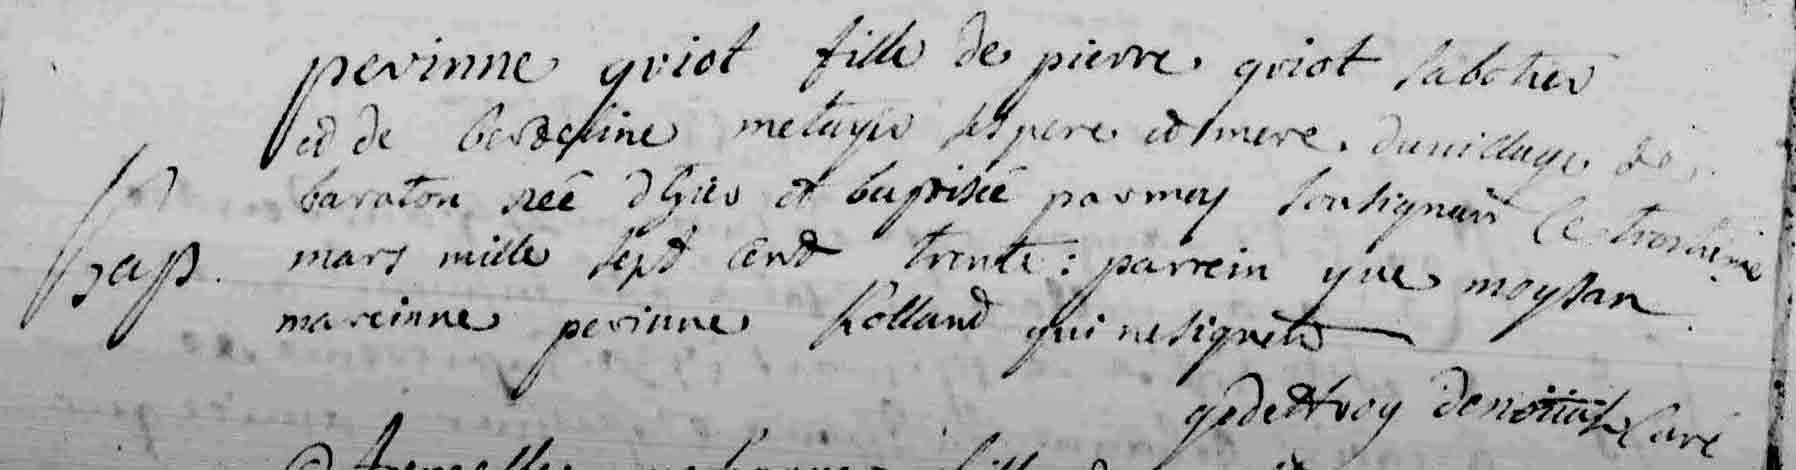 perinne qriot fille de pierre qriot sabotier
et de metayer ses pere et mere du village de
baraton née d'hier et baptisée par moy soussignant le troisieme
Bap. mars mille sept cent trente : parrein yve moysan
mareinne perinne Rolland qui ne signent